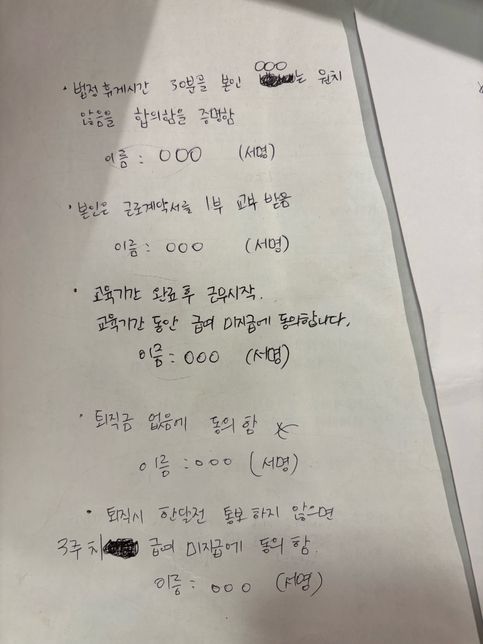 · 법정휴게시간 30분을 본인 OOO는 원치
않음을 합의함을 증명함
이름 : OOO (서명)
· 본인은 근로계약서를 1부 교부 받음
이름 : OOO (서명)
· 교육기간 완료 후 근무시작.
교육기간 동안 급여 미지급에 동의합니다.
이름 : OOO (서명)
· 퇴직금 없음에 동의 함
이름 : OOO (서명)
· 퇴직시 한달전 통보 하지 않으면
3주 치 급여 미지급에 동의 함.
이름 : OOO (서명)